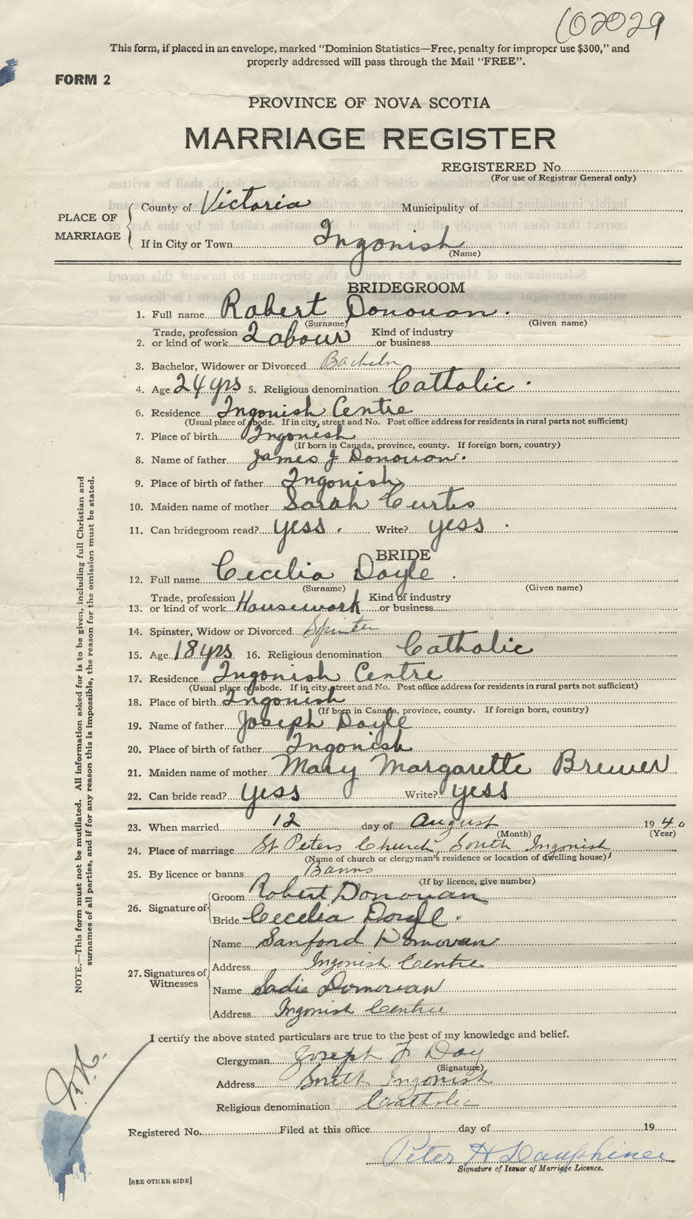 102029
This form, if placed in an envelope, marked "Dominion Statistics—Free, penalty for improper use $300," and
properly addressed will pass through the Mail "FREE".
FORM 2
PROVINCE OF NOVA SCOTIA
MARRIAGE REGISTER
REGISTERED No.
(For use of Registrar General only)
PLACE OF MARRIAGE
County of Victoria Municipality of
If in City or Town Ingonish
(Name)
BRIDEGROOM
1. Full name Robert Donovan.
(Surname) (Given name)
2. Trade, profession or kind of work Labour Kind of industry or business
3. Bachelor, Widower or Divorced Bachelor
4. Age 24 yrs 5. Religious denomination Catholic.
6. Residence Ingonish Centre
(Usual place of abode. If in city, street and No. Post office address for residents in rural parts not sufficient)
7. Place of birth Ingonish
(If born in Canada, province, county. If foreign born, country)
8. Name of father James J Donovan.
9. Place of birth of father Ingonish
10. Maiden name of mother Sarah Curtis
11. Can bridegroom read? yess. Write? yess.
BRIDE
12. Full name Cecilia Doyle.
(Surname) (Given name)
13. Trade, profession or kind of work Housework Kind of industry or business
14. Spinster, Widow or Divorced Spinster
15. Age 18 yrs 16. Religious denomination Catholic
17. Residence Ingonish Centre
(Usual place of abode. If in city, street and No. Post office address for residents in rural parts not sufficient)
18. Place of birth Ingonish
(If born in Canada, province, county. If foreign born, country)
19. Name of father Joseph Doyle
20. Place of birth of father Ingonish
21. Maiden name of mother Mary Margarette Brewer
22. Can bride read? Yess Write? yess
23. When married 12 day of August 1940
(Month) (Year)
24. Place of marriage St Peters Church, South Ingonish
(Name of church or clergyman's residence or location of dwelling house)
25. By licence or banns Banns
(If by licence, give number)
26. Signature of
Groom Robert Donovan
Bride Cecelia Doyle.
27. Signatures of Witnesses
Name Sanford Donovan
Address Ingonish Centre
Name Sadie Donovan
Address Ingonish Centre
I certify the above stated particulars are true to the best of my knowledge and belief.
Clergyman Joseph F Day
(Signature)
Address South Ingonish
Religious denomination Catholic
Registered No. Filed at this office day of 19
Peter H Dauphinee
Signature of Issuer of Marriage Licence.
[SEE OTHER SIDE]
NOTE.—This form must not be mutilated. All information asked for is to be given, including full Christian and
surnames of all parties, and if for any reason this is impossible, the reason for the omission must be stated.